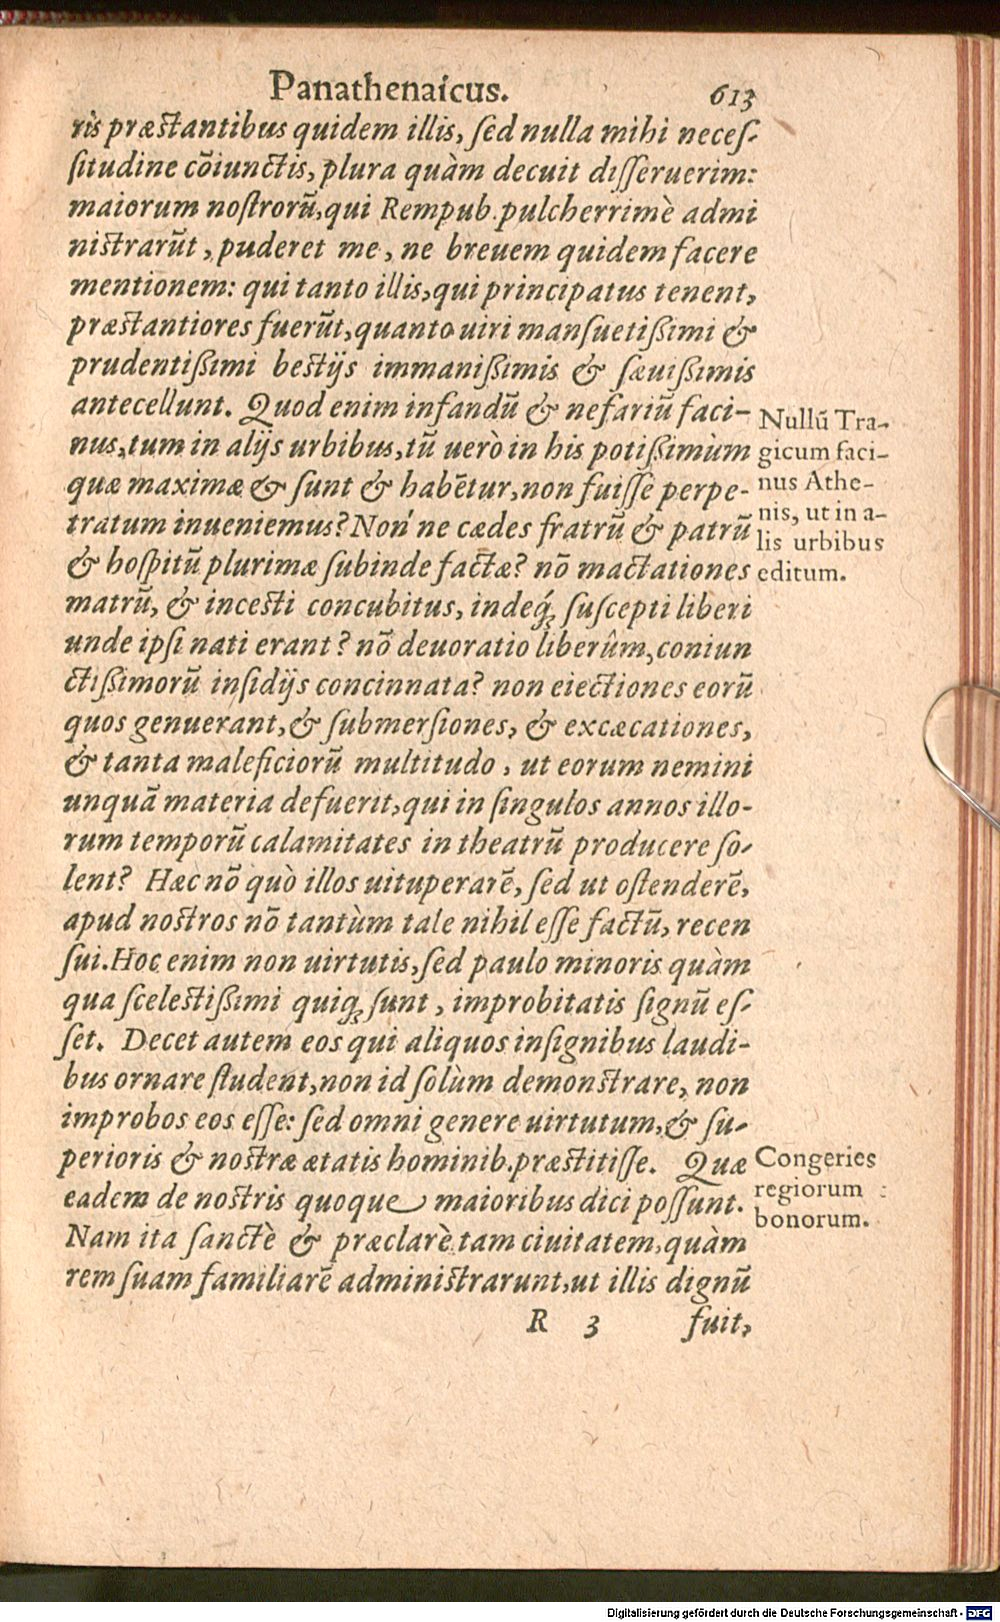 Panathenaicus. 613
ris præstantibus quidem illis, sed nulla mihi neces-
situdine cõiunctis, plura quàm decuit disseruerim:
maiorum nostrorũ, qui Rempub. pulcherrimè admi
nistrarũt, puderet me, ne breuem quidem facere
mentionem: qui tanto illis, qui principatus tenent,
præstantiores fuerũt, quanto uiri mansuetißimi &
prudentißimi bestijs immanißimis & sæuißimis
antecellunt. Quod enim infandũ & nefariũ faci-
nus, tum in alijs urbibus, tũ uerò in his potißimùm
quæ maximæ & sunt & habẽtur, non fuisse perpe-
tratum inueniemus? Non´ ne cædes fratrũ & patrũ
& hospitũ plurimæ subinde factæ? nõ mactationes
matrũ, & incesti concubitus, indeq́; suscepti liberi
unde ipsi nati erant? nõ deuoratio liberûm, coniun
ctißimorũ insidijs concinnata? non eiectiones eorũ
quos genuerant, & submersiones, & excæcationes,
& tanta maleficiorũ multitudo, ut eorum nemini
unquã materia defuerit, qui in singulos annos illo-
rum temporũ calamitates in theatrũ producere so-
lent? Hæc nõ quò illos uituperarẽ, sed ut ostenderẽ,
apud nostros nõ tantùm tale nihil esse factũ, recen
sui. Hoc enim non uirtutis, sed paulo minoris quàm
qua scelestißimi quiq; sunt, improbitatis signũ es-
set. Decet autem eos qui aliquos insignibus laudi-
bus ornare student, non id solùm demonstrare, non
improbos eos esse: sed omni genere uirtutum, & su-
perioris & nostræ ætatis hominib. præstitisse. Quæ
eadem de nostris quoque maioribus dici possunt.
Nam ita sanctè & præclarè tam ciuitatem, quàm
rem suam familiarẽ administrarunt, ut illis dignũ
R 3 fuit,
Nullũ Tra-
gicum faci-
nus Athe-
nis, ut in a-
lis urbibus
editum.
Congeries
regiorum
bonorum.
Digitalisierung gefördert durch die Deutsche Forschungsgemeinschaft - DFG